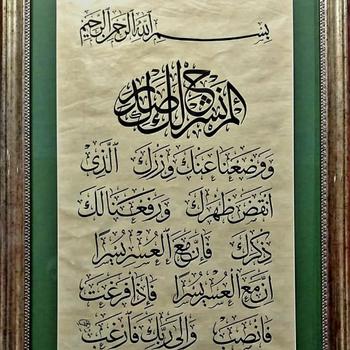 بسم الله الرحمن الرحيم
ألم نشرح لك صدرك
ووضعنا عنك وزرك الذي
أنقض ظهرك ورفعنا لك
ذكرك فإن مع العسر يسرا
إن مع العسر يسرا فإذا فرغت
فانصب وإلى ربك فارغب